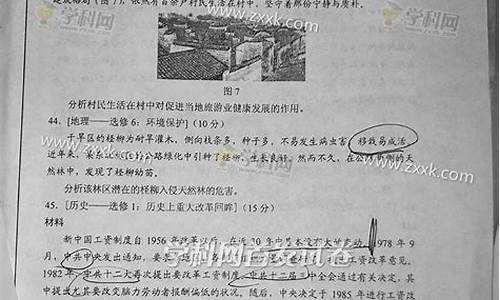 建成格局(图7),依然有百余户村民生活在村中,坚守着那份宁静与质朴。
学科网 www.zxxk.com
图7
分析村民生活在村中对促进当地旅游业健康发展的作用。
44. [地理——选修6:环境保护](10分)
干旱区的柽柳为耐旱灌木,侧向枝条多,种子多,不易发生病虫害,移栽易成活。
近年来,某森林公路绿化中引种了柽柳,生长良好。然而不久,在公路两侧的天
然林中,发现了柽柳幼苗。
分析该林区潜在的柽柳入侵天然林的危害。
45. [历史——选修1:历史上重大改革回眸](15分)
材料
新中国工资制度自1956年改革以后,在近30年中基本没有大的变动。1978年9
月,中共中央发出通知,要 工资改革意见。
1982年,中共十二大再次提出要改革工资制度。中共十二届三中全会通过有关决定,其
中提出尤其要改变脑力劳动者报酬偏低的状况。随后,中央决定于1985年进行工资改
学科网首发试卷